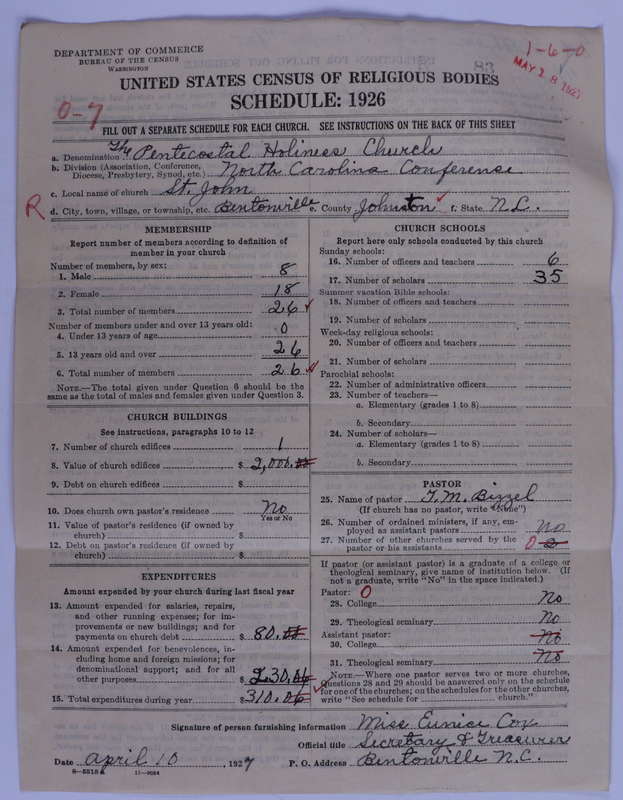 DEPARTMENT OF COMMERCE
BUREAU OF THE CENSUS
WASHINGTON
83
1-6-0
MAY 18 1927
UNITED STATES CENSUS OF RELIGIOUS BODIES
SCHEDULE: 1926
0-7
FILL OUT A SEPARATE SCHEDULE FOR EACH CHURCH. SEE INSTRUCTIONS ON THE BACK OF THIS SHEET
a. Denomination The Pentecostal Holiness Church
b. Division (Association, Conference, Diocese, Presbytery, Synod, etc.) North Carolina Conferense
c. Local name of church St. John
R d. City, town, village, or township, etc. Bentonville e. County Johnston f. State N.C.
MEMBERSHIP
Report number of members according to definition of
member in your church
Number of members, by sex:
1. Male 8
2. Female 18
3. Total number of members 26
Number of members under and over 13 years old:
4. Under 13 years of age 0
5. 13 years old and over 26
6. Total number of members 26
NOTE.—The total given under Question 6 should be the
same as the total of males and females given under Question 3.
CHURCH BUILDINGS
See instructions, paragraphs 10 to 12
7. Number of church edifices 1
8. Value of church edifices $ 2,000.00
9. Debt on church edifices $
10. Does church own pastor's residence No
Yes or No
11. Value of pastor's residence (if owned by
church) $
12. Debt on pastor's residence (if owned by
church) $
EXPENDITURES
Amount expended by your church during last fiscal year
13. Amount expended for salaries, repairs,
and other running expenses; for im-
provements or new buildings; and for
payments on church debt $ 80.00
14. Amount expended for benevolences, in-
cluding home and foreign missions; for
denominational support; and for all
other purposes $ 230.06
15. Total expenditures during year $ 310.06
CHURCH SCHOOLS
Report here only schools conducted by this church
Sunday schools:
16. Number of officers and teachers 6
17. Number of scholars 35
Summer vacation Bible schools:
18. Number of officers and teachers
19. Number of scholars
Week-day religious schools:
20. Number of officers and teachers
21. Number of scholars
Parochial schools:
22. Number of administrative officers
23. Number of teachers—
a. Elementary (grades 1 to 8)
b. Secondary
24. Number of scholars—
a. Elementary (grades 1 to 8)
b. Secondary
PASTOR
25. Name of pastor T. M. Bizzel
(If church has no pastor, write "None")
26. Number of ordained ministers, if any, em-
ployed as assistant pastors No
27. Number of other churches served by the
pastor or his assistants 0
If pastor (or assistant pastor) is a graduate of a college or
theological seminary, give name of institution below. (If
not a graduate, write "No" in the space indicated.)
Pastor: 0
28. College No
29. Theological seminary No
Assistant pastor:
30. College No
31. Theological seminary No
NOTE.—Where one pastor serves two or more churches,
Questions 28 and 29 should be answered only on the schedule
for one of the churches; on the schedules for the other churches,
write "See schedule for church."
Signature of person furnishing information Miss Eunice Cox
Official title Secretary & Treasurer
Date april 10, 1927 P. O. Address Bentonville N.C.
8-5518a 11-9024